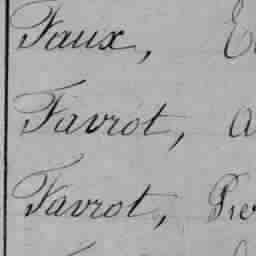 Faux,
Favrot,
Favrot,